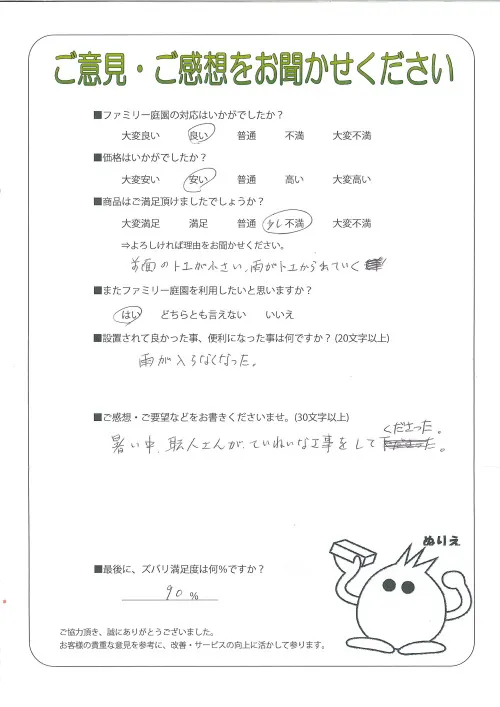 ご意見・ご感想をお聞かせください
■ファミリー庭園の対応はいかがでしたか？
大変良い 良い 普通 不満 大変不満
■価格はいかがでしたか？
大変安い 安い 普通 高い 大変高い
■商品はご満足頂けましたでしょうか？
大変満足 満足 普通 少し不満 大変不満
⇒よろしければ理由をお聞かせください。
前面のトユが小さい、雨がトユからもれていく
■またファミリー庭園を利用したいと思いますか？
はい どちらとも言えない いいえ
■設置されて良かった事、便利になった事は何ですか？(20文字以上)
雨が入らなくなった。
■ご感想・ご要望などをお書きくださいませ。(30文字以上)
暑い中、職人さんが、ていねいな工事をしてくださった。
ぬりえ
■最後に、ズバリ満足度は何％ですか？
90 %
ご協力頂き、誠にありがとうございました。
お客様の貴重な意見を参考に、改善・サービスの向上に活かして参ります。